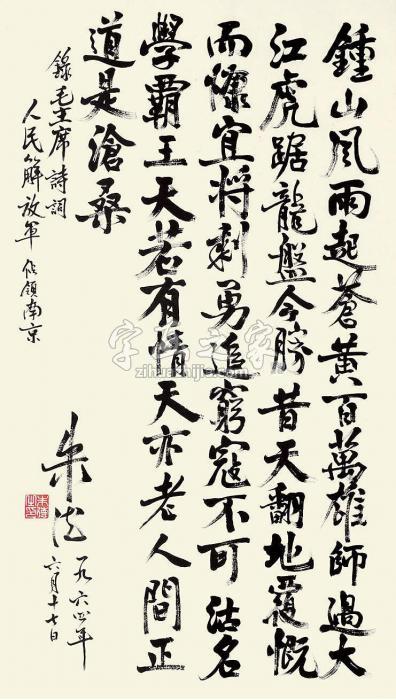 鍾山风雨起蒼黄百萬雄師過大
江虎踞龍盤今勝昔天翻地覆慨
而慷宜將剩勇追窮寇不可沽名
學霸王天若有情天亦老人間正
道是滄桑
錄毛主席詩詞
人民解放軍佔領南京
朱德
一九六四年
六月十七日
字画之家
zihuazhijia.com